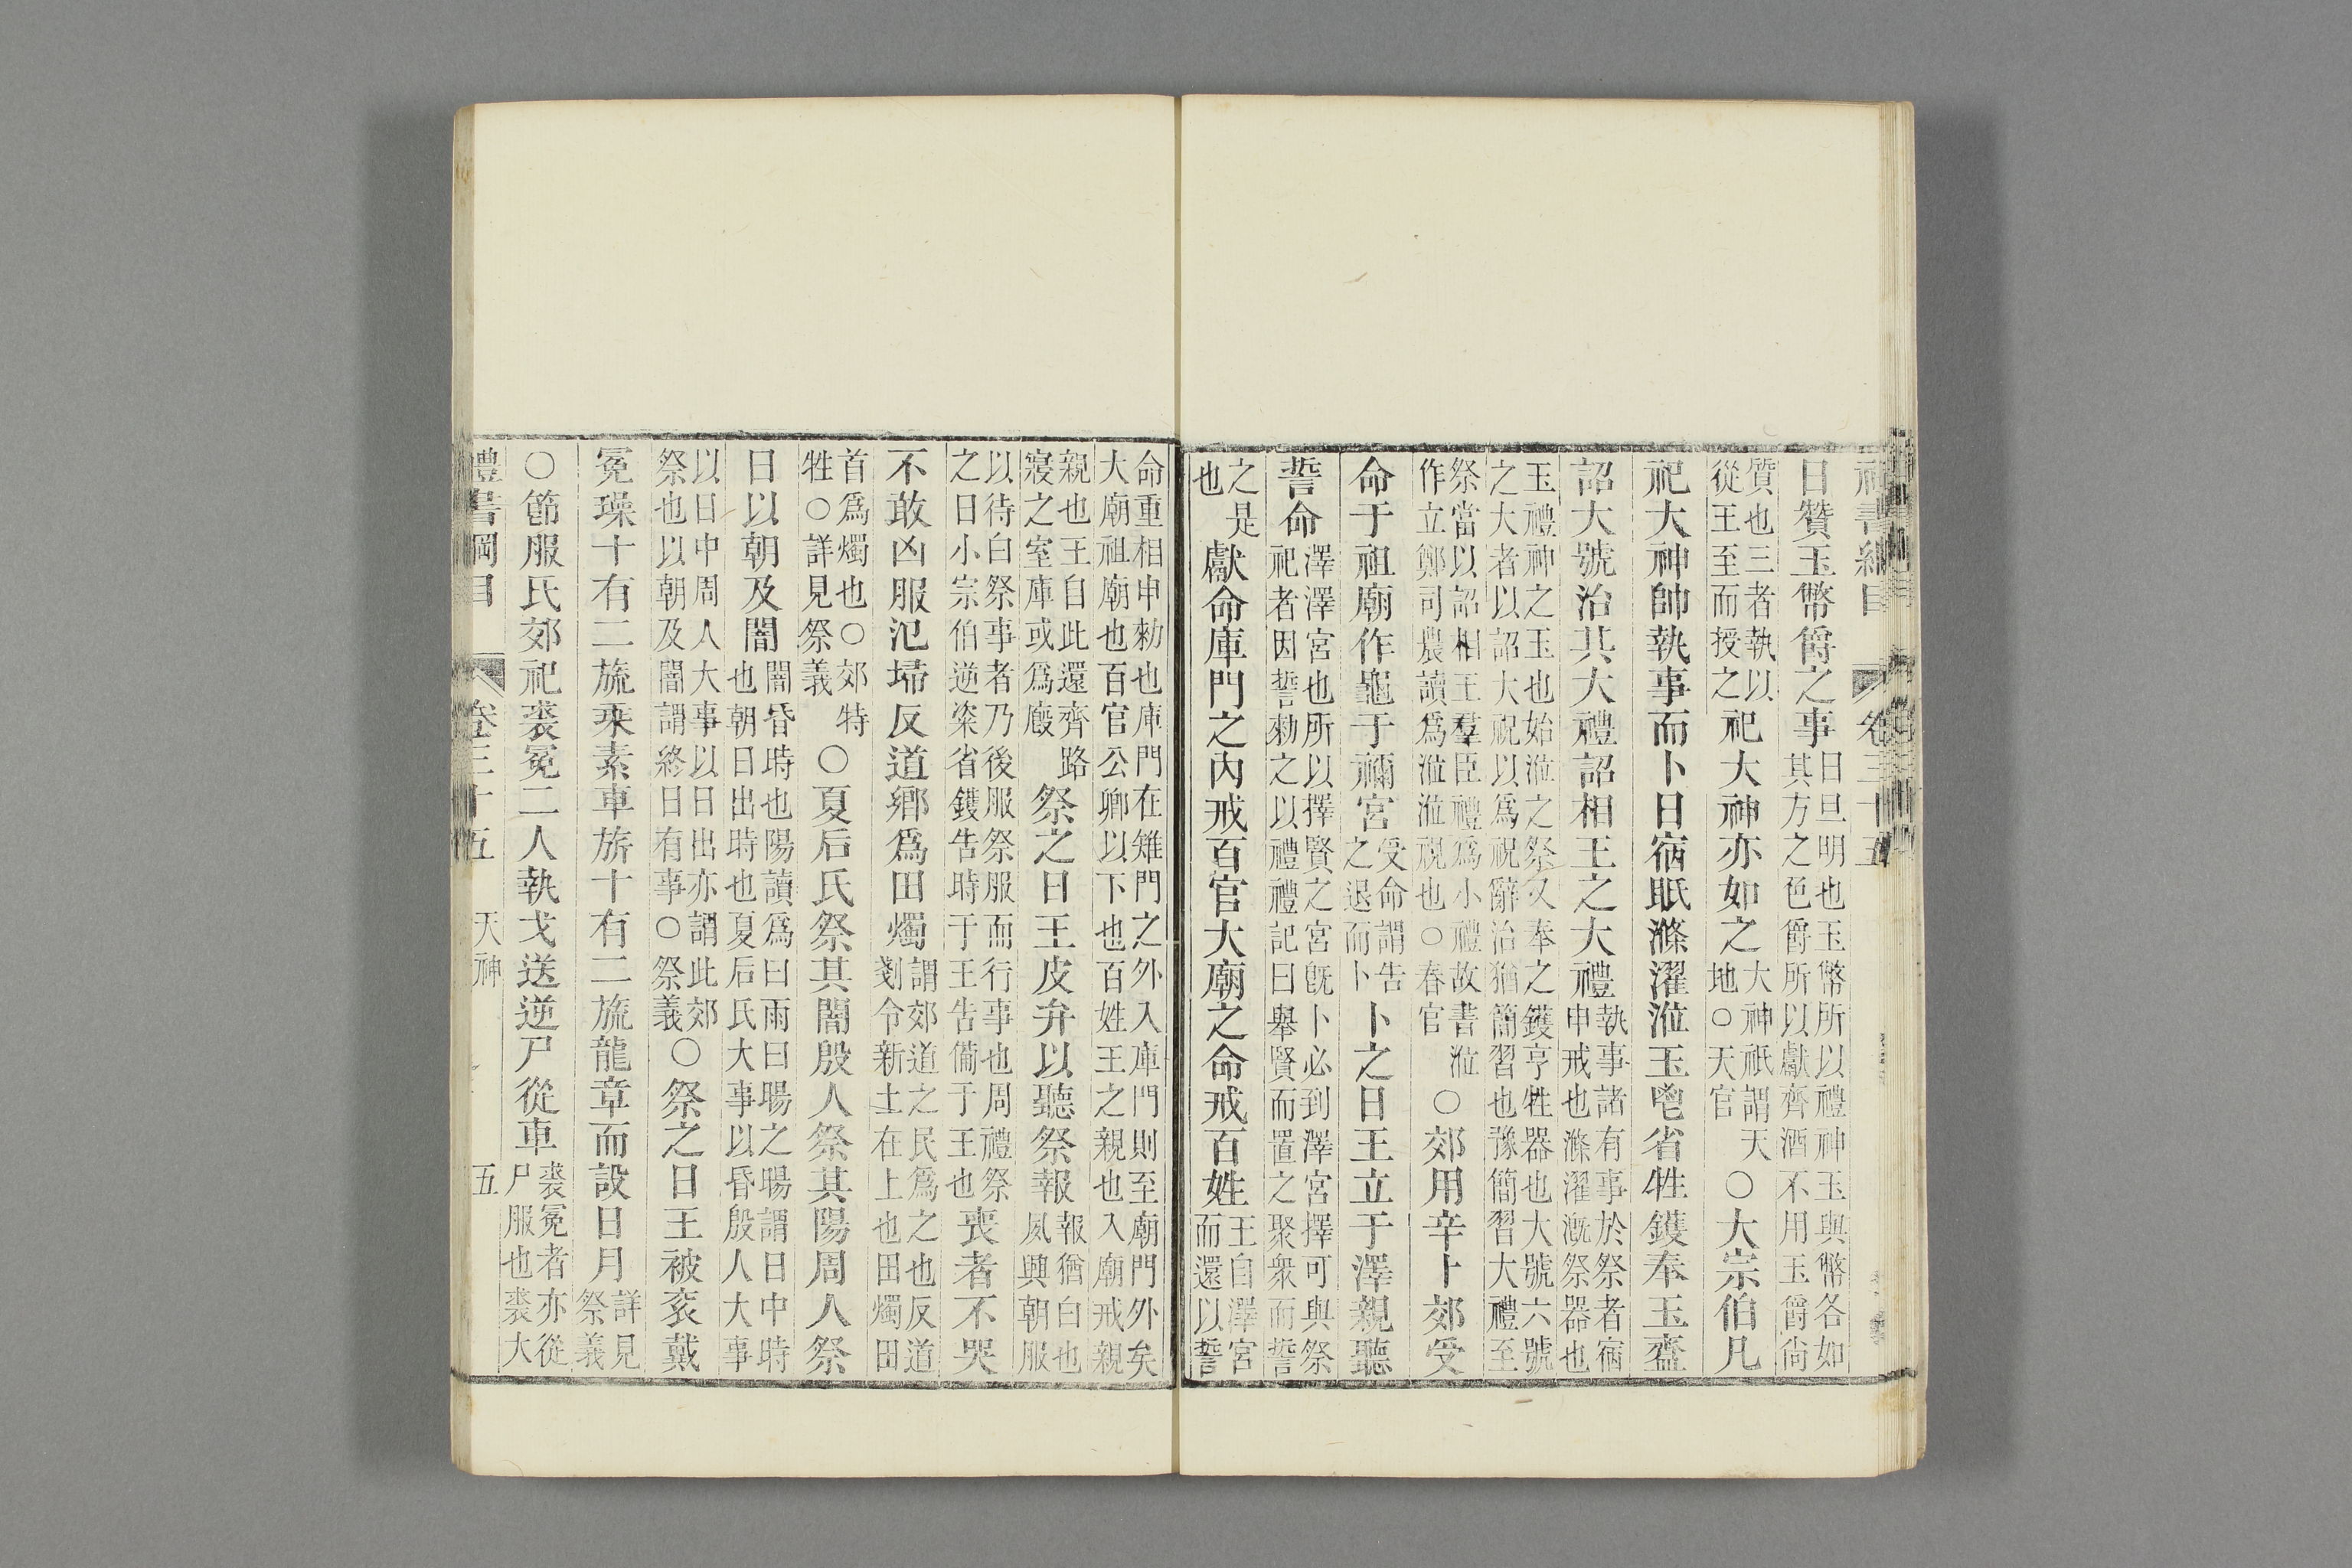 禮書綱目 卷三十五
日贊玉幣爵之事日旦明也玉幣所以禮神玉與幣各如其方之色爵所以獻齊酒不用玉爵尙
質也三者執以從王至而授之祀大神亦如之大神祇謂天地○天官○大宗伯凡
祀大神帥執事而卜日宿眡滌濯涖玉鬯省牲鑊奉玉齍
詔大號治其大禮詔相王之大禮執事諸有事於祭者宿申戒也滌濯漑祭器也
玉禮神之玉也始涖之祭又奉之鑊亨牲器也大號六號之大者以詔大祝以爲祝辭治猶簡習也豫簡習大禮至
祭當以詔相王羣臣禮爲小禮故書涖作立鄭司農讀爲涖涖視也○春官○郊用辛卜郊受
命于祖廟作龜于禰宮受命謂告之退而卜卜之日王立于澤親聽
誓命澤澤宮也所以擇賢之宮旣卜必到澤宮擇可與祭祀者因誓勑之以禮禮記曰舉賢而置之聚衆而誓
之是也獻命庫門之內戒百官大廟之命戒百姓王自澤宮而還以誓
命重相申勑也庫門在雉門之外入庫門則至廟門外矣大廟祖廟也百官公卿以下也百姓王之親也入廟戒親
親也王自此還齊路寢之室庫或爲廏祭之日王皮弁以聽祭報報猶白也夙興朝服
以待白祭事者乃後服祭服而行事也周禮祭之日小宗伯逆粢省鑊告時于王告備于王也喪者不哭
不敢凶服氾埽反道鄉爲田燭謂郊道之民爲之也反道剗令新土在上也田燭田
首爲燭也○郊特牲○詳見祭義○夏后氏祭其闇殷人祭其陽周人祭
日以朝及闇闇昏時也陽讀爲曰雨曰暘之暘謂日中時也朝日出時也夏后氏大事以昏殷人大事
以日中周人大事以日出亦謂此郊祭也以朝及闇謂終日有事○祭義○祭之日王被袞戴
冕璪十有二旒乘素車旂十有二旒龍章而設日月詳見祭義
○節服氏郊祀裘冕二人執戈送逆尸從車裘冕者亦從尸服也裘大
禮書綱目 卷三十五 天神 五